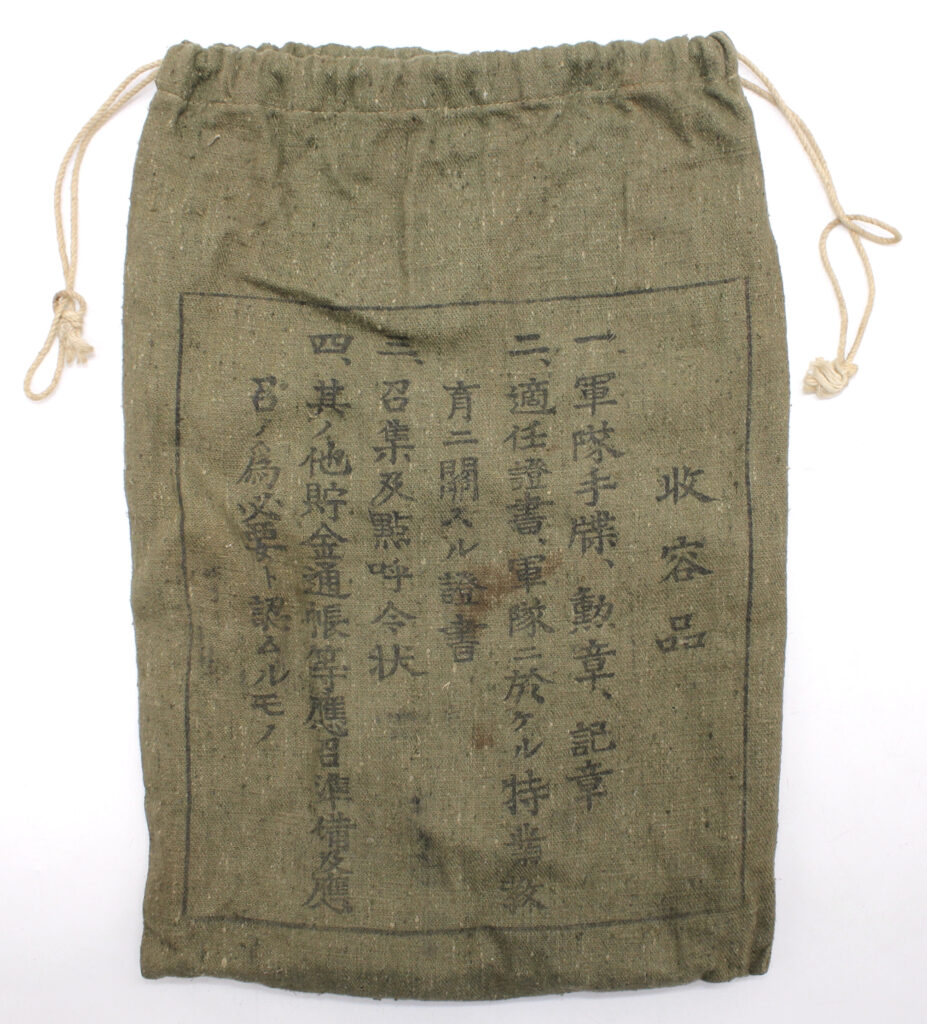 收容品
一、軍隊手牒、勳章、記章
二、適任證書、軍隊ニ於ケル特業敎
育ニ關スル證書
三、召集及點呼令狀
四、其ノ他貯金通帳等應召準備及應
召ノ爲必要ト認ムルモノ